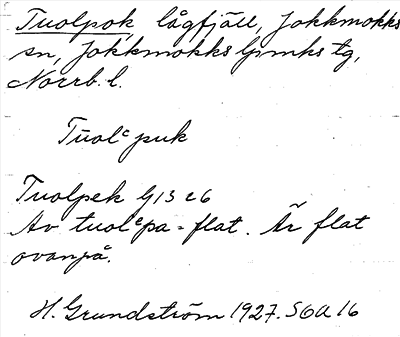 Tuolpok, lågfjäll, Jokkmokks
sn, Jokkmokks lpmks tg,
Norrb. l.
Tūolᶜpuk
Tuolpek G13 c6
Av tuolᶜpa = flat. Är flat
ovanpå.
H. Grundström 1927. SOA 16